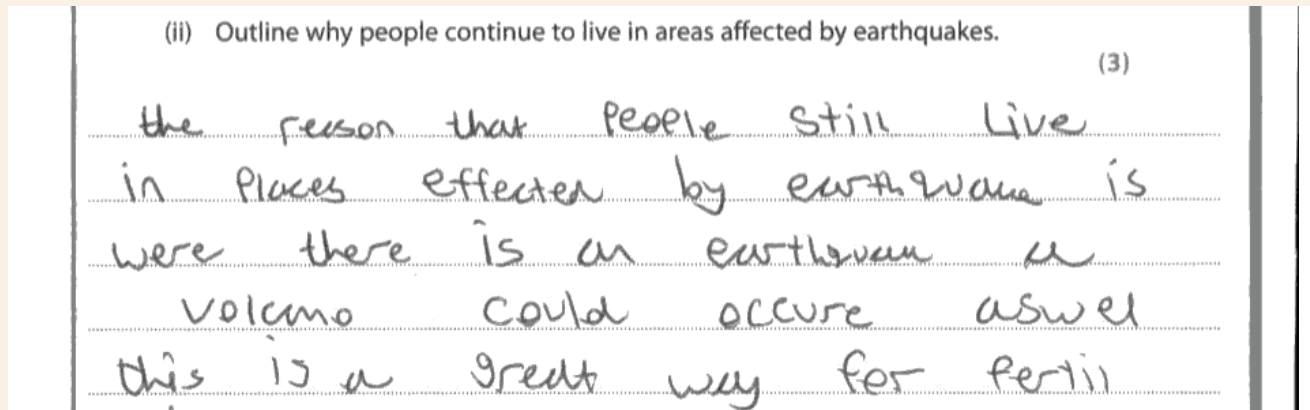 (ii) Outline why people continue to live in areas affected by earthquakes.
(3)
the reason that People still Live
in Places effected by earthquake is
were there is an earthquau a
volcano could occure aswel
this is a great way for fertil